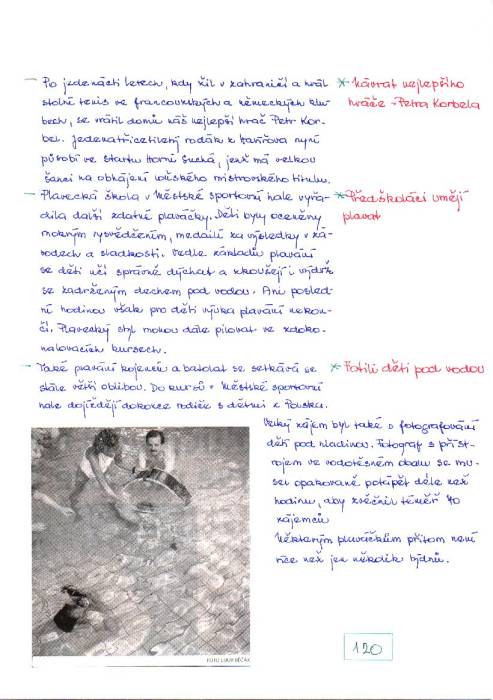 - Po jedenácti letech, kdy žil v zahraničí a hrál
stolní tenis ve francouzských a německých klu-
bech, se vrátil domů náš nejlepší hráč Petr Kor-
bel. Jedenatřicetiletý rodák z Havířova nyní
působí ve Startu Horní Suchá, jenž má velkou
šanci na obhájení loňského mistrovského titulu.
* Návrat nejlepšího
hráče - Petra Korbela
- Plavecká škola v Městské sportovní hale vyřa-
dila další zdatné plaváčky. Děti byly oceněny
mokrým vysvědčením, medailí za výsledky v zá-
vodech a sladkostí. Vedle základů plavání
se děti učí správně dýchat a zkoušejí i výdrž
se zadrženým dechem pod vodou. Ani posled-
ní hodinou však pro děti výuka plavání nekon-
čí. Plavecký styl mohou dále pilovat ve zdoko-
nalovacích kursech.
* Předškoláci umějí
plavat
- Také plavání kojenců a batolat se setkává se
stále větší oblibou. Do kursů v Městské sportovní
hale dojíždějí dokonce rodiče s dětmi z Polska.
* Fotili děti pod vodou
Velký zájem byl také o fotografování
dětí pod hladinou. Fotograf s příst-
rojem ve vodotěsném obalu se mu-
sel opakovaně potápět déle než
hodinu, aby zvěčnil téměř 40
zájemců
Některým plaváčkům přitom není
více než jen několik týdnů.
120